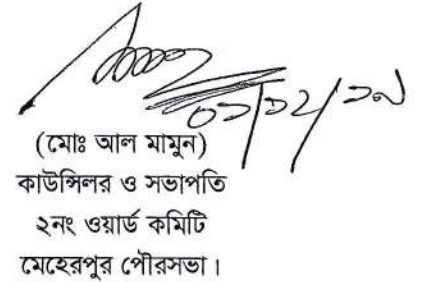 ০১/১২/১৯
(মোঃ আল মামুন)
কাউন্সিলর ও সভাপতি
২নং ওয়ার্ড কমিটি
মেহেরপুর পৌরসভা।